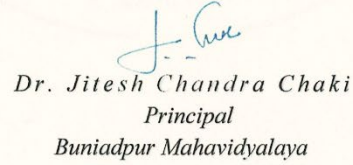 Dr. Jitesh Chandra Chaki
Principal
Buniadpur Mahavidyalaya